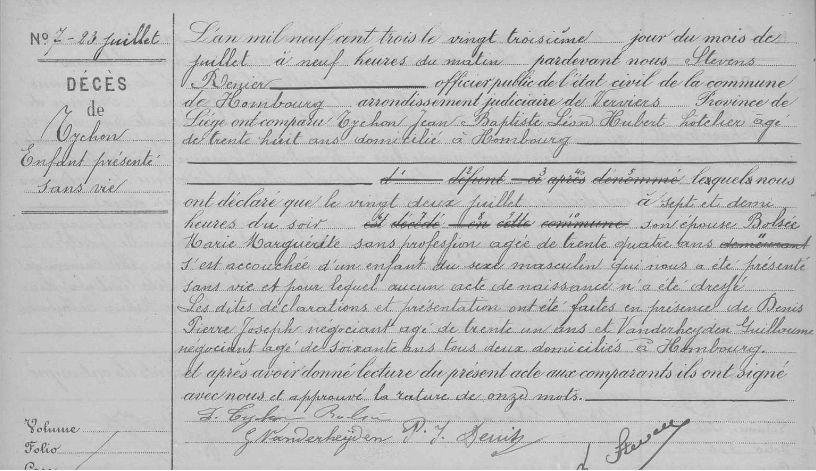 No 7 - 23 juillet
DÉCÈS
de
Tychon
Enfant présenté
sans vie
L'an mil neuf cent trois le vingt troisième jour du mois de
juillet à neuf heures du matin pardevant nous Stevens
Renier officier public de l'état civil de la commune
de Hombourg arrondissement judiciaire de Verviers Province de
Liège ont comparu Tychon Jean Baptiste Léon Hubert hôtelier âgé
de trente huit ans domicilié à Hombourg
d' défunt ci après dénommé lesquels nous
ont déclaré que le vingt deux juillet à sept et demi
heures du soir est décédé en cette commune son épouse Bolsée
Marie Marguerite sans profession agée de trente quatre ans demeurant
s'est accouchée d'un enfant du sexe masculin qui nous a été présenté
sans vie et pour lequel aucun acte de naissance n'a été dressé
Les dites déclarations et présentation ont été faites en présence de Denis
Pierre Joseph négociant agé de trente un ans et Vanderheyden Guillaume
négociant agé de soixante ans tous deux domiciliés à Hombourg.
et après avoir donné lecture du présent acte aux comparants ils ont signé
avec nous et approuvé la rature de onze mots.
G Vanderheyden P. J. Denis
Stevens
Volume
Folio